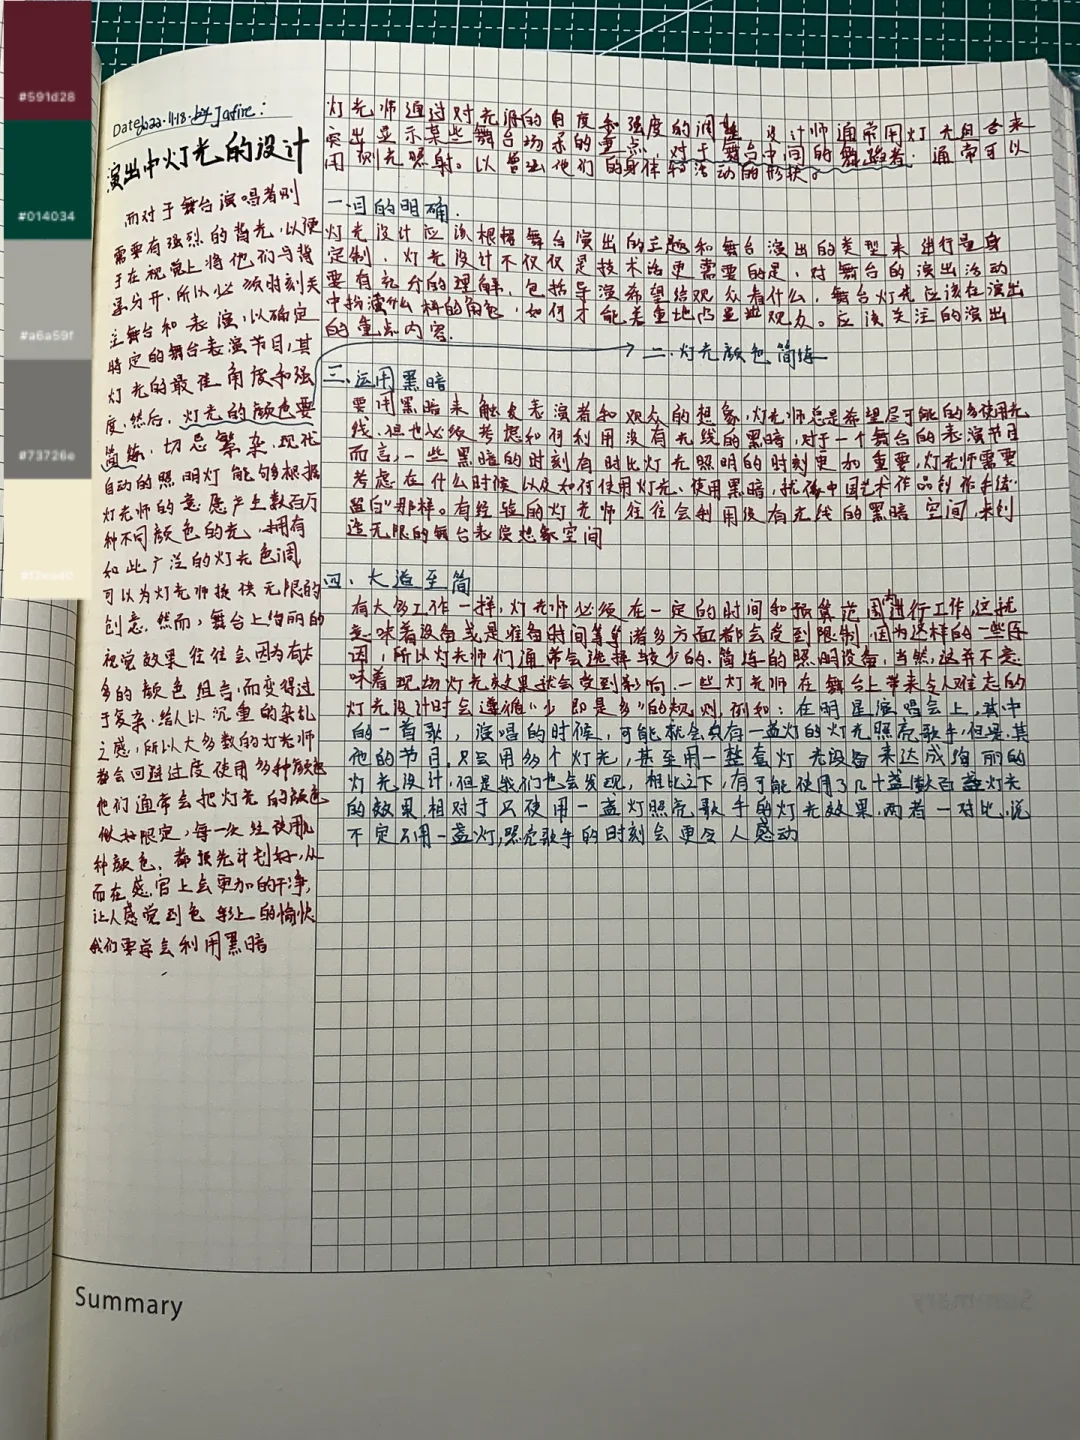 #591d28
#014034
#a6a59f
#73726e
Date 2022.11.18. by Jasfire:
演出中灯光的设计
而对于舞台演唱者则
需要有强烈的背光,以便
于在视觉上将他们与背
景分开,所以必须时刻关
主舞台和表演,以确定
特定的舞台表演节目,其
灯光的最佳角度和强
度,然后,灯光的颜色要
简练,切忌繁杂,现代
自动的照明灯能够根据
灯光师的意愿产生数百万
种不同颜色的光,拥有
如此广泛的灯光色调,
可以为灯光师提供无限的
创意,然而,舞台上绚丽的
视觉效果往往会因为有太
多的颜色组合,而变得过
于复杂,给人以沉重的杂乱
之感,所以大多数的灯光师
都会回避过度使用多种颜色
他们通常会把灯光的颜色
做好限定,每一次only使用几
种颜色,都预先计划好,从
而在感官上会更加的干净,
让人感觉到色彩上的愉快
我们要学会利用黑暗
灯光师通过对光源的角度和强度的调整,设计师通常用灯光组合来
突出显示某些舞台场景的重点,对于舞台中间的舞蹈者,通常可以
用侧光照射。以营造他们的身体和活动的形状。
一.目的明确.
灯光设计应该根据舞台演出的主题和舞台演出的类型来进行量身
定制,灯光设计不仅仅是技术活更需要的是,对舞台的演出活动
要有充分的理解,包括导演希望给观众看什么,舞台灯光应该在演出
中扮演什么样的角色,如何才能着重地凸显出观众。应该关注的演出
的重点内容.
二.灯光颜色简练
三.运用黑暗
要用黑暗来触发表演者和观众的想象,灯光师总是希望尽可能的多使用光
线,但也必须考虑如何利用没有光线的黑暗,对于一个舞台的表演节目
而言,一些黑暗的时刻有时比灯光照明的时刻更加重要,灯光师需要
考虑在什么时候以及如何使用灯光、使用黑暗,就像中国艺术作品创作手法“
留白”那样。有经验的灯光师往往会利用没有光线的黑暗空间,来创
造无限的舞台表演想象空间
四、大道至简
有大多工作一样,灯光师必须在一定的时间和预算范围内进行工作,这就
意味着设备或是准备时间等等诸多方面都会受到限制,因为这样的一些原
因,所以灯光师们通常会选择较少的、简练的照明设备,当然,这并不意
味着现场灯光效果就会受到影响,一些灯光师在舞台上带来令人难忘的
灯光设计时会遵循“少即是多”的规则,例如:在明星演唱会上,其中
的一首歌,演唱的时候,可能就会只有一盏灯的灯光照亮歌手,但是,其
他的节目,只会用多个灯光,甚至用一整套灯光设备来达成绚丽的
灯光设计,但是我们也会发现,相比之下,有可能使用了几十盏数百盏灯光
的效果,相对于只使用一盏灯照亮歌手的灯光效果,两者一对比,说
不定只用一盏灯,照亮歌手的时刻会更令人感动
Summary